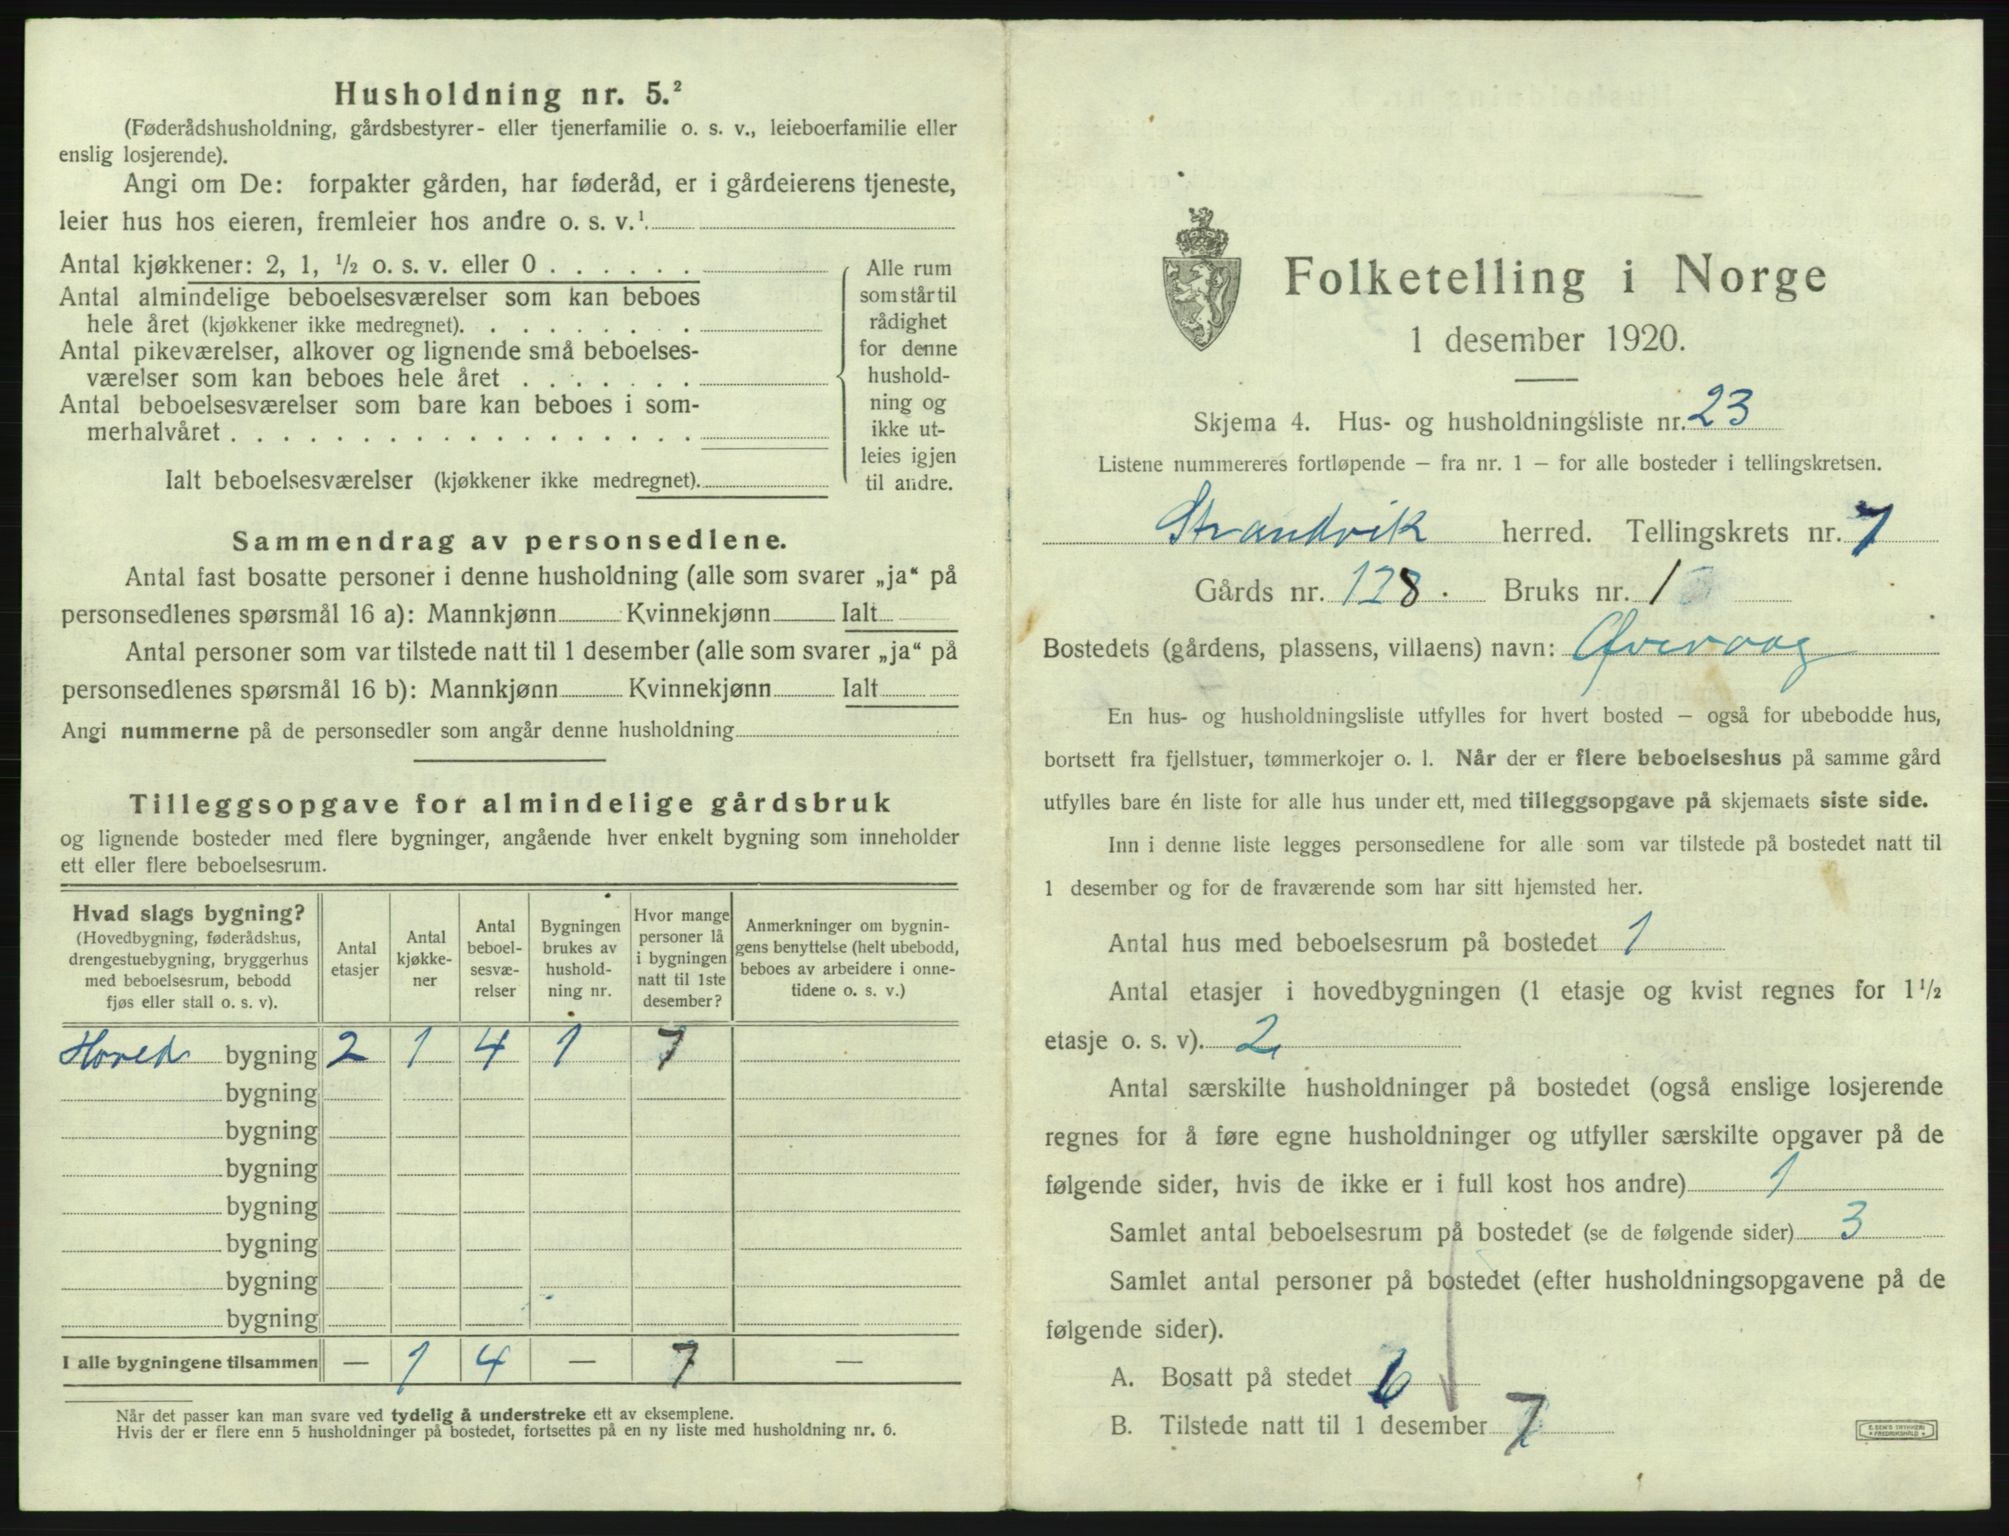 Husholdning nr. 5.²
(Føderådshusholdning, gårdsbestyrer- eller tjenerfamilie o. s. v., leieboerfamilie eller
enslig losjerende).
Angi om De: forpakter gården, har føderåd, er i gårdeierens tjeneste,
leier hus hos eieren, fremleier hos andre o. s. v.¹.
Antal kjøkkener: 2, 1, ½ o. s. v. eller 0 . . . . . .
Antal almindelige beboelsesværelser som kan beboes
hele året (kjøkkener ikke medregnet). . . . . . . . .
Antal pikeværelser, alkover og lignende små beboelses-
værelser som kan beboes hele året . . . . . . .
Antal beboelsesværelser som bare kan beboes i som-
merhalvåret . . . . . . . . . . . . . . . . . .
Ialt beboelsesværelser (kjøkkener ikke medregnet).
Alle rum
som står til
rådighet
for denne
hushold-
ning og
ikke ut-
leies igjen
til andre.
Sammendrag av personsedlene.
Antal fast bosatte personer i denne husholdning (alle som svarer „ja“ på
personsedlenes spørsmål 16 a): Mannkjønn Kvinnekjønn Ialt
Antal personer som var tilstede natt til 1 desember (alle som svarer „ja“ på
personsedlenes spørsmål 16 b): Mannkjønn Kvinnekjønn Ialt
Angi nummerne på de personsedler som angår denne husholdning
Tilleggsopgave for almindelige gårdsbruk
og lignende bosteder med flere bygninger, angående hver enkelt bygning som inneholder
ett eller flere beboelsesrum.
Hvad slags bygning?
(Hovedbygning, føderådshus,
drengestuebygning, bryggerhus
med beboelsesrum, bebodd
fjøs eller stall o. s. v).
Antal
etasjer
Antal
kjøkke-
ner
Antal
beboel-
sesvæ-
relser
Bygningen
brukes av
hushold-
ning nr.
Hvor mange
personer lå
i bygningen
natt til 1ste
desember?
Anmerkninger om bygnin-
gens benyttelse (helt ubebodd,
beboes av arbeidere i onne-
tidene o. s. v.)
Hoved bygning 2 1 4 1 7
bygning
bygning
bygning
bygning
bygning
bygning
bygning
I alle bygningene tilsammen — 1 4 — 7 —
Når det passer kan man svare ved tydelig å understreke ett av eksemplene.
Hvis der er flere enn 5 husholdninger på bostedet, fortsettes på en ny liste med husholdning nr. 6.
Folketelling i Norge
1 desember 1920.
Skjema 4. Hus- og husholdningsliste nr. 23
Listene nummereres fortløpende – fra nr. 1 – for alle bosteder i tellingskretsen.
Strandvik herred. Tellingskrets nr. 7
Gårds nr. 128. Bruks nr. 1
Bostedets (gårdens, plassens, villaens) navn: Øvrevaag
En hus- og husholdningsliste utfylles for hvert bosted – også for ubebodde hus,
bortsett fra fjellstuer, tømmerkojer o. l. Når der er flere beboelseshus på samme gård
utfylles bare én liste for alle hus under ett, med tilleggsopgave på skjemaets siste side.
Inn i denne liste legges personsedlene for alle som var tilstede på bostedet natt til
1 desember og for de fraværende som har sitt hjemsted her.
Antal hus med beboelsesrum på bostedet 1
Antal etasjer i hovedbygningen (1 etasje og kvist regnes for 1½
etasje o. s. v). 2
Antal særskilte husholdninger på bostedet (også enslige losjerende
regnes for å føre egne husholdninger og utfyller særskilte opgaver på de
følgende sider, hvis de ikke er i full kost hos andre) 1
Samlet antal beboelsesrum på bostedet (se de følgende sider) 3
Samlet antal personer på bostedet (efter husholdningsopgavene på de
følgende sider).
A. Bosatt på stedet 6
B. Tilstede natt til 1 desember 7